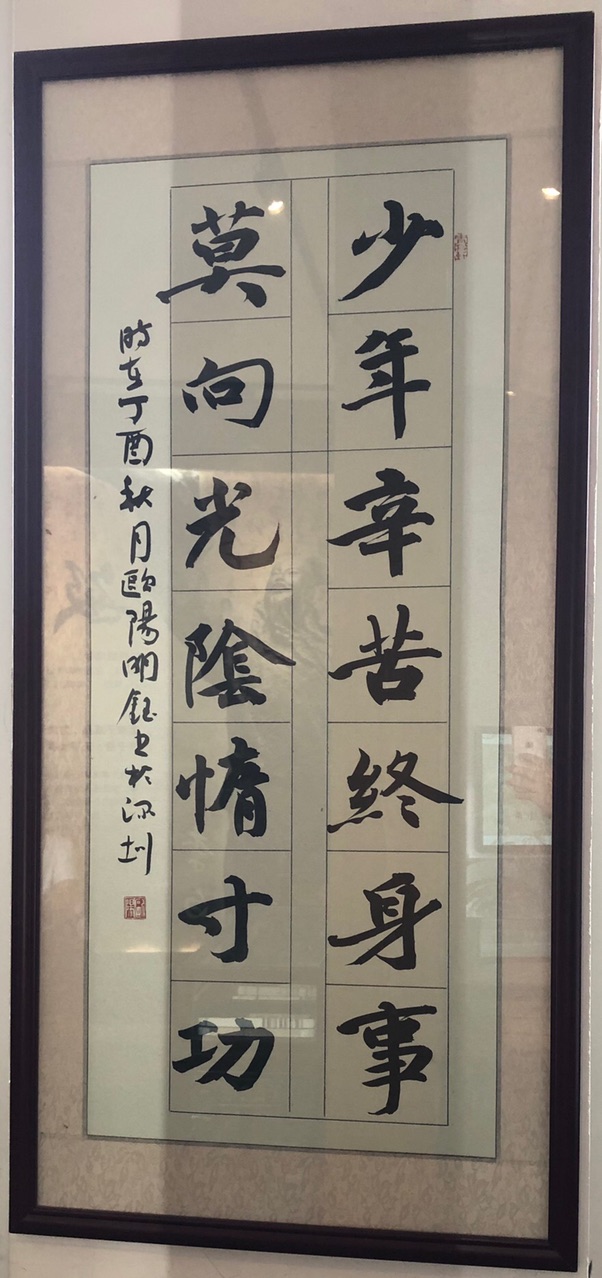 少年辛苦終身事
莫向光陰惰寸功
時在丁酉秋月歐陽明鈺书於深圳